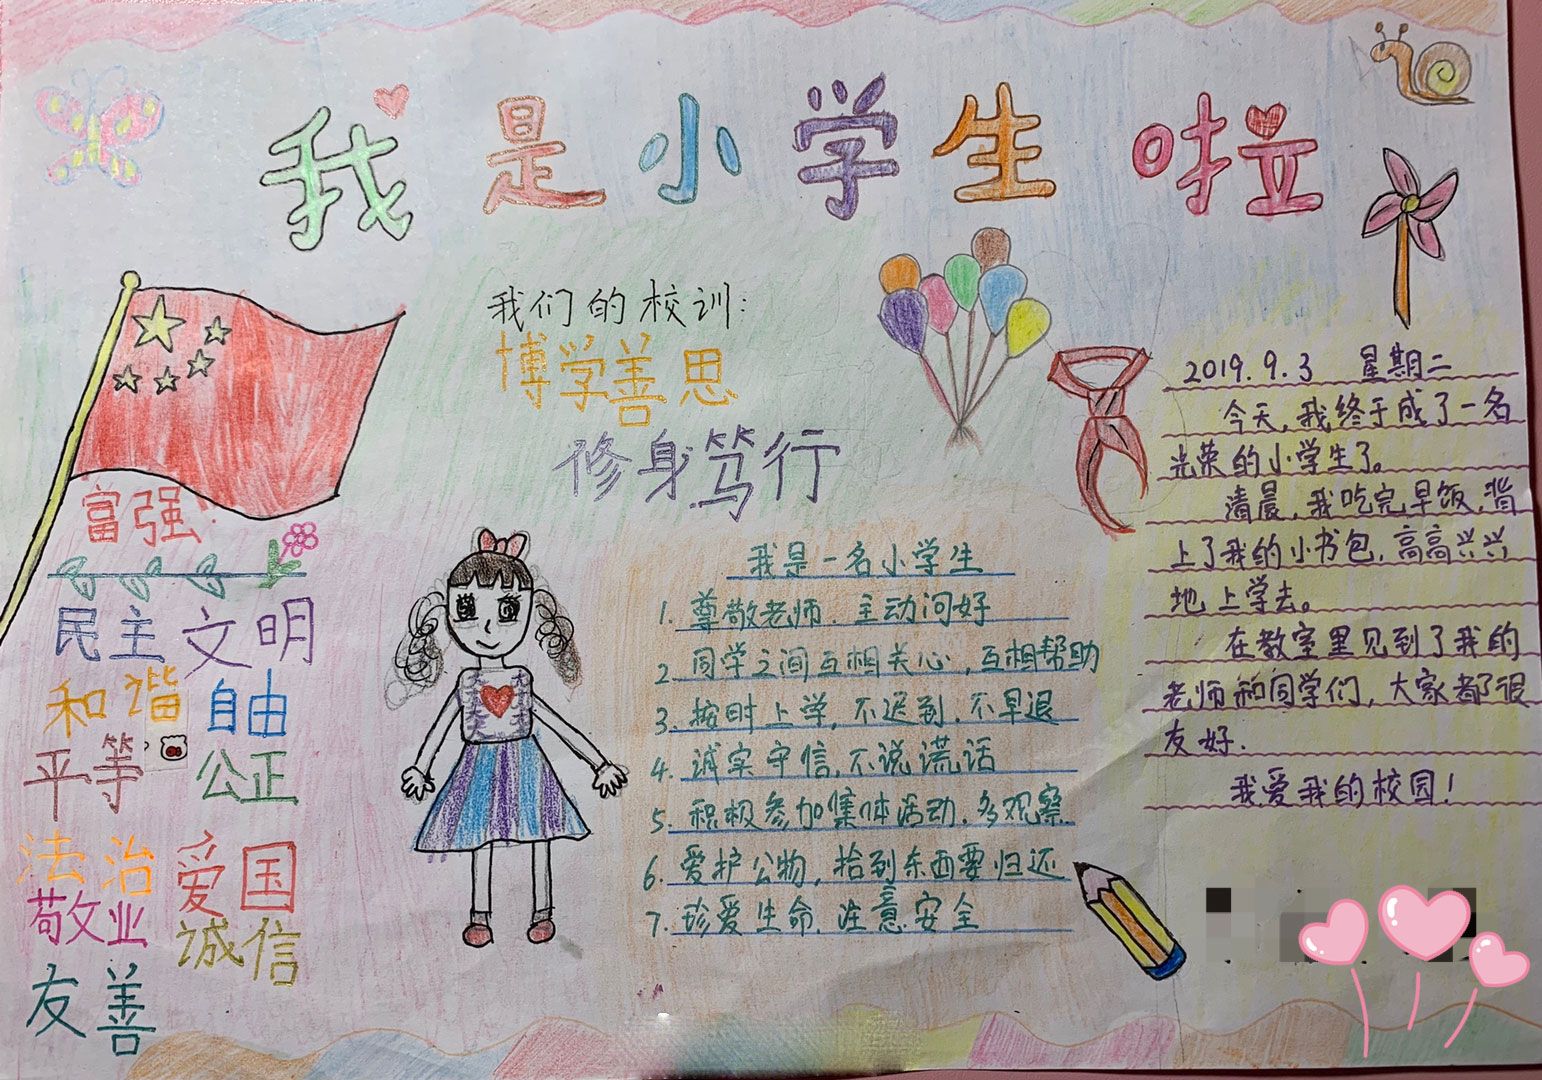 我是小学生啦
我们的校训:
博学善思
修身笃行
富强
民主 文明
和谐 自由
平等 公正
法治 爱国
敬业 诚信
友善
我是一名小学生
1. 尊敬老师.主动问好
2. 同学之间互相关心,互相帮助
3. 按时上学,不迟到.不早退
4. 诚实守信,不说谎话
5. 积极参加集体活动.多观察
6. 爱护公物,拾到东西要归还
7. 珍爱生命.注意安全
2019.9.3 星期二
今天,我终于成了一名
光荣的小学生了。
清晨,我吃完早饭,背
上了我的小书包,高高兴兴
地上学去。
在教室里见到了我的
老师和同学们,大家都很
友好.
我爱我的校园!